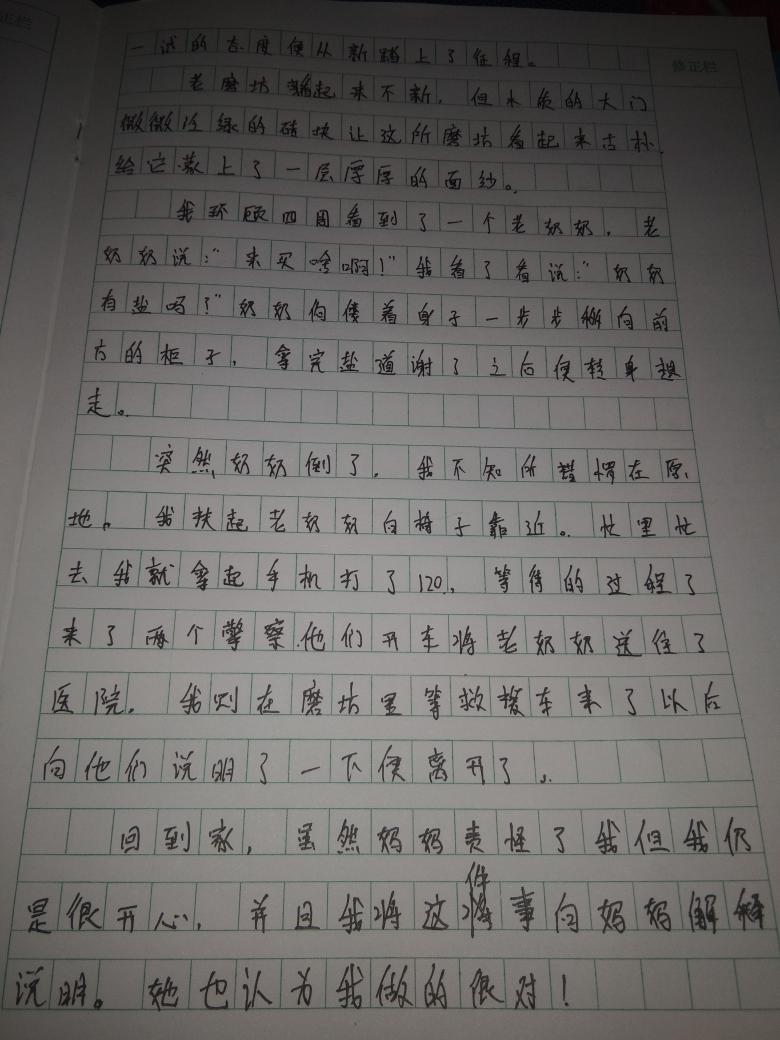 一试的态度便从新踏上了征程。
修正栏
老磨坊看起来不新，但木质的大门
做做泛绿的砖块让这所磨坊看起来古朴，
给它蒙上了一层厚厚的面纱。
我环顾四周看到了一个老奶奶，老
奶奶说：“来买啥啊！”我看了看说：“奶奶
有盐吗？”奶奶佝偻着身子一步步挪向前
方的柜子，拿完盐道谢了之后便转身想
走。
突然奶奶倒了，我不知所措愣在原
地。我扶起老奶奶向椅子靠近。忙里忙
去我就拿起手机打了120，等待的过程了
来了两个警察，他们开车将老奶奶送往了
医院，我则在磨坊里等救援车来了以后
向他们说明了一下便离开了。
回到家，虽然妈妈责怪了我但我仍
是很开心，并且我将这件事向妈妈解释
说明。她也认为我做的很对！